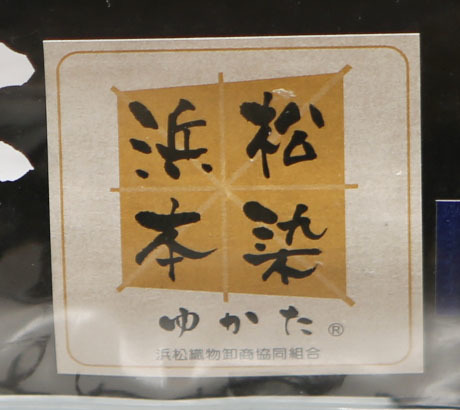 浜松
本染
ゆかた®
浜松織物卸商協同組合